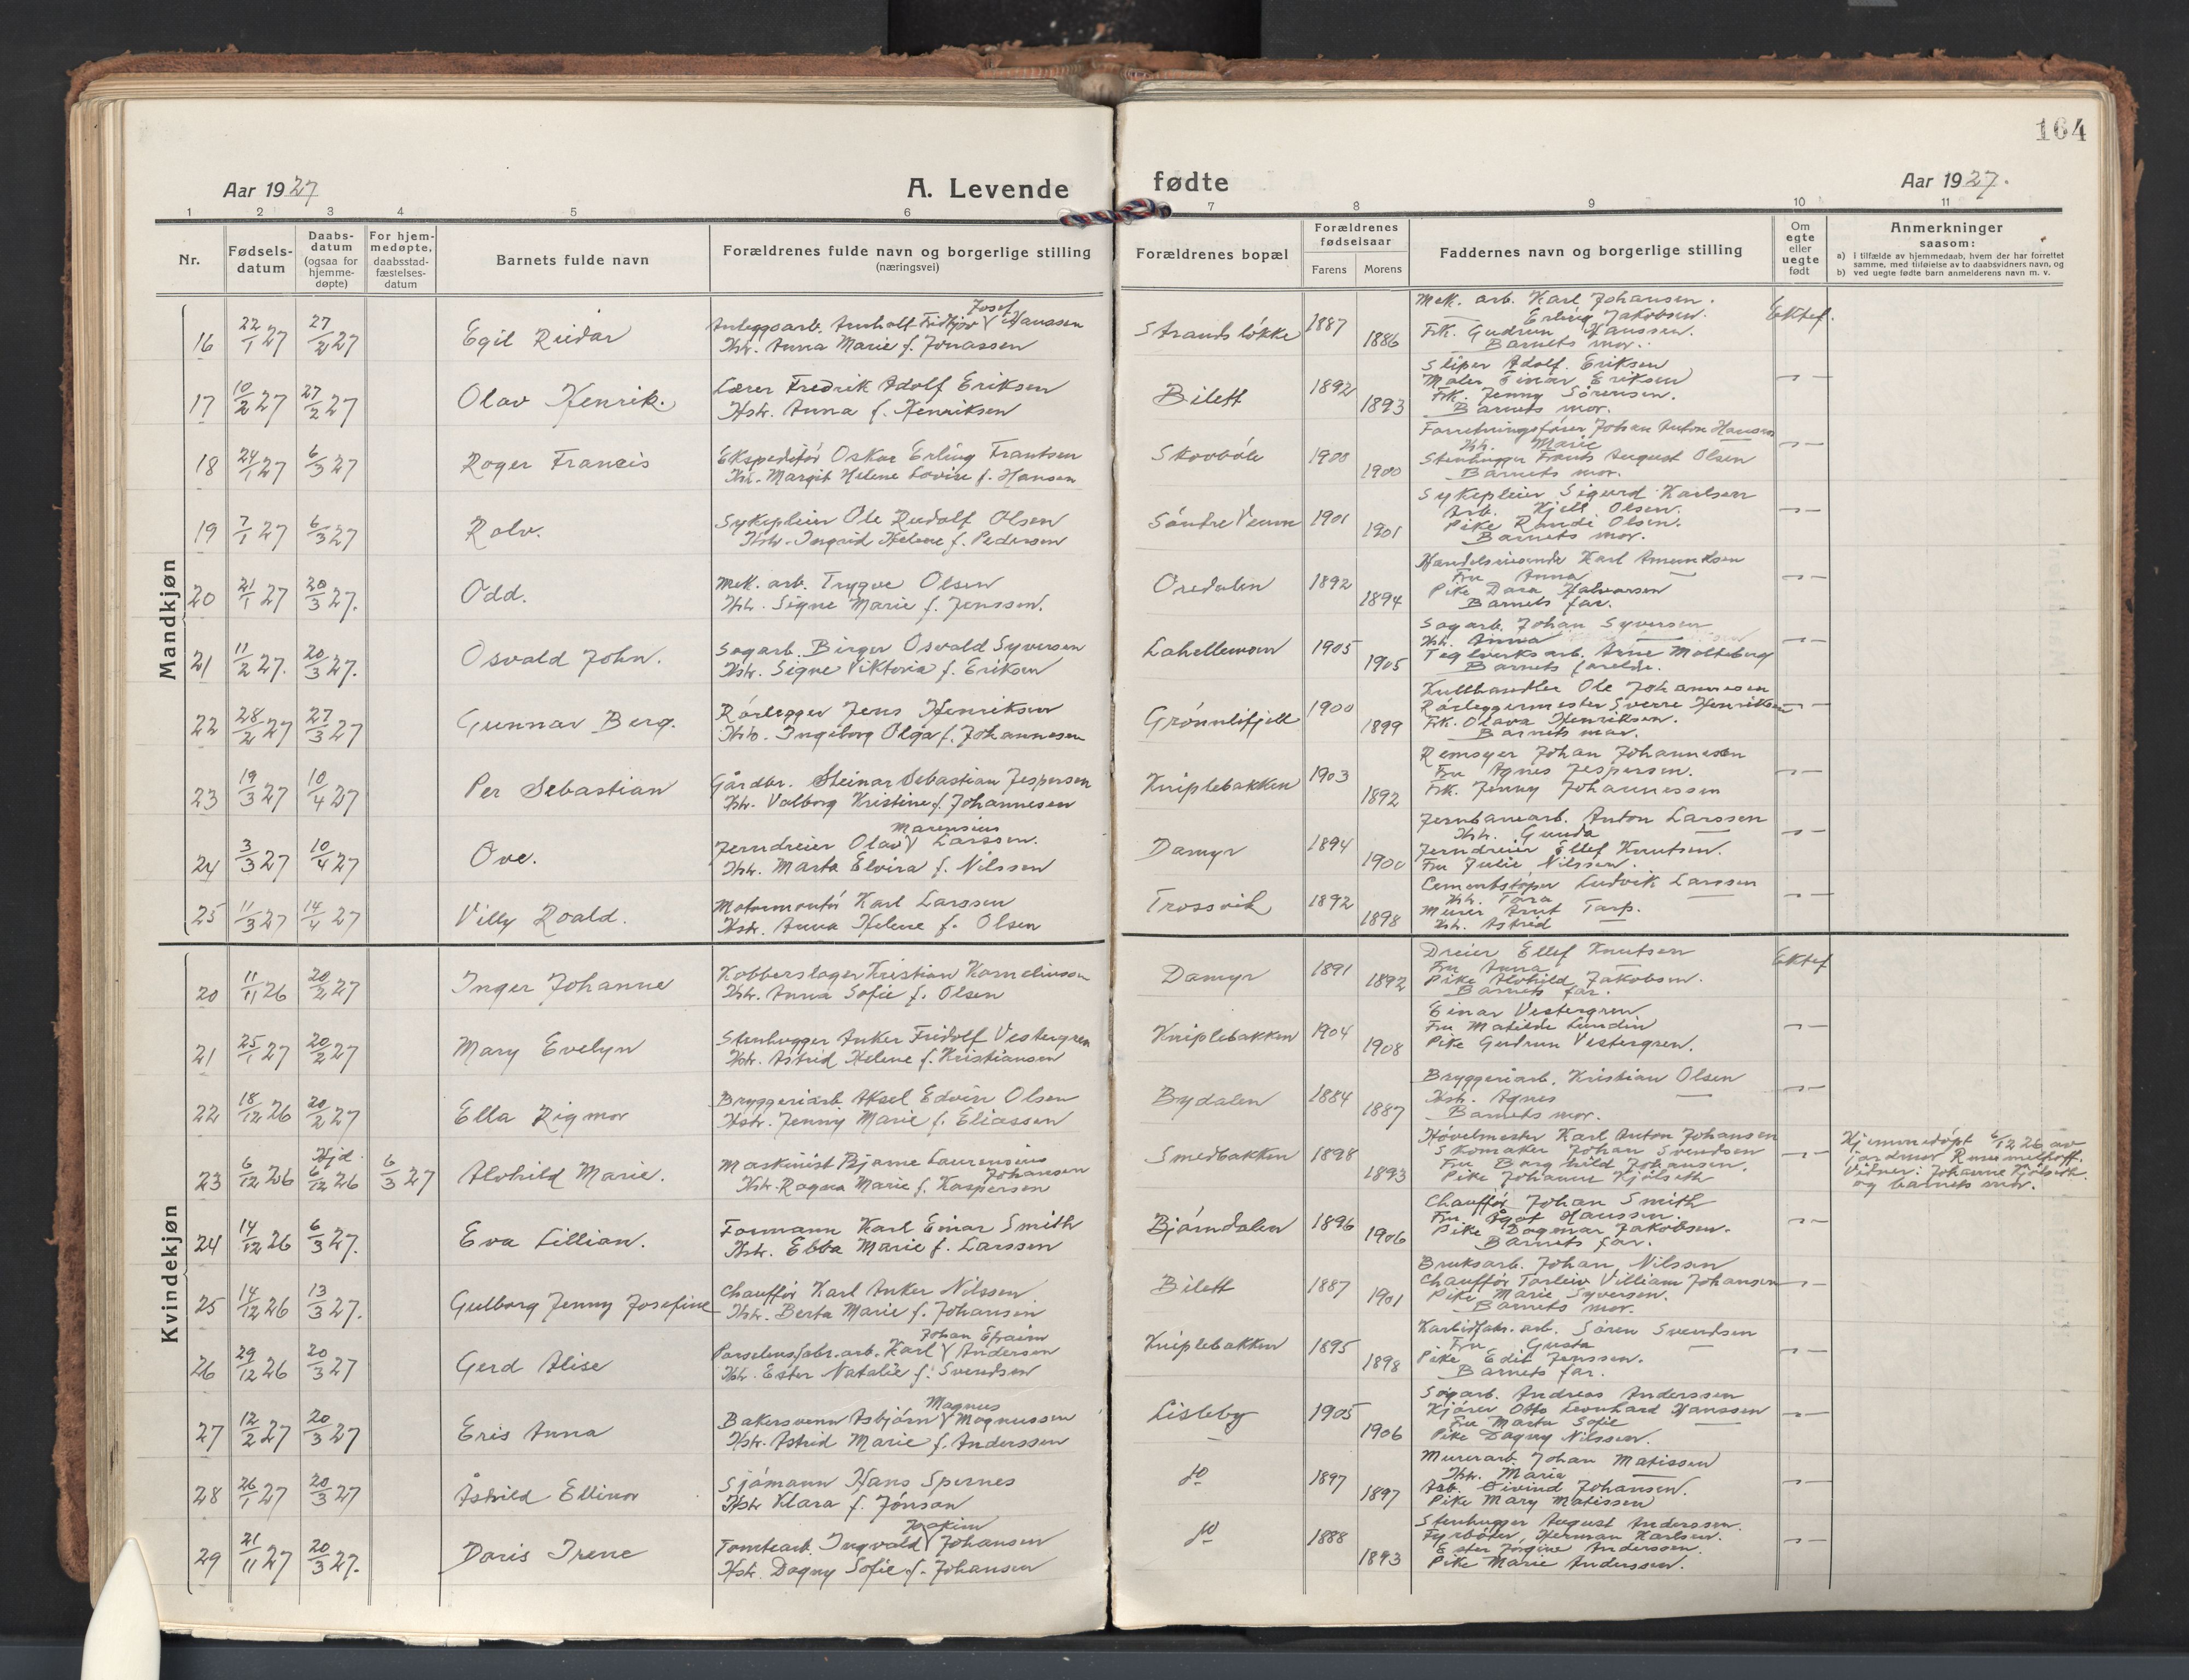 164
Aar 1927
A. Levende
fødte
Aar 1927.
1 2 3 4 5 6 7 8 9 10 11
Nr.
Fødsels-
datum
Daabs-
datum
(ogsaa for
hjemme-
døpte)
For hjem-
medøpte,
daabsstad-
fæstelses-
datum
Barnets fulde navn
Forældrenes fulde navn og borgerlige stilling
(næringsvei)
Forældrenes bopæl
Forældrenes
fødselsaar
Farens
Morens
Faddernes navn og borgerlige stilling
Om
egte
eller
uegte
født
Anmerkninger
saasom:
a) i tilfælde av hjemmedaab, hvem der har forrettet
samme, med tilføielse av to daabsvidners navn, og
b) ved uegte fødte barn anmelderens navn m. v.
Mandkjøn
16 22/1 27 27/2 27 Egil Reidar
Josef
Anleggsarb. Arnholt Fridtjov V Hanssen
Hstr. Anna Marie f. Jonassen
Strandsløkke 1887 1886
Mek. arb. Karl Johansen.
— Erling Jakobsen.
Frk. Gudrun Hanssen.
Barnets mor.
Ektef.
17 10/2 27 27/2 27 Olav Henrik.
Lærer Fredrik Adolf Eriksen
Hstr. Anna f. Henriksen
Bilett 1892 1893
Sliper Adolf Eriksen
Maler Einar Eriksen
Frk. Jenny Sørensen.
Barnets mor.
18 24/1 27 6/3 27 Roger Francis
Ekspeditør Oskar Erling Frantsen
Hstr. Margit Helene Lovise f. Hansen
Skovbøle 1900 1900
Forretningsfører Johan Anton Hansen
Hstr. Marie —
Stenhugger Frants August Olsen
Barnets mor.
19 7/1 27 6/3 27 Rolv.
Sykepleier Ole Rudolf Olsen
Hstr. Ingrid Helene f. Pedersen
Søndre Veum 1901 1901
Sykepleier Sigurd Karlsen
Arb. Kjell Olsen.
Pike Randi Olsen.
Barnets mor.
20 21/1 27 20/3 27. Odd.
Mek. arb. Trygve Olsen
Hstr. Signe Marie f. Jenssen.
Oredalen 1892 1894
Handelsreisende Karl Amundsen
Fru Anna —
Pike Dora Halvorsen
Barnets far.
21 11/2 27. 20/3 27. Osvald John.
Sagarb. Birger Osvald Syversen
Hstr. Signe Viktoria f. Eriksen
Lahellemoen 1905 1905
Sagarb. Johan Syversen
Hstr. Anna —
Teglverksarb. Arne Molteberg
Barnets forelde.
22 28/2 27 27/3 27 Gunnar Berg.
Rørlegger Jens Henriksen
Hstr. Ingeborg Olga f. Johannesen
Grønnlifjell 1900 1899
Kullhandler Ole Johannesen
Rørleggermester Sverre Henriksen
Frk. Olava Henriksen.
Barnets mor.
23 19/3 27 10/4 27 Per Sebastian
Gårdbr. Steinar Sebastian Jespersen
Hstr. Valborg Kristine f. Johannesen
Kniplebakken 1903 1892
Remsyer Johan Johannesen
Fru Agnes Jespersen.
Frk. Jenny Johannessen
24 3/3 27 10/4 27 Ove.
Marensius
Jerndreier Olav V Larssen.
Hstr. Marta Elvira f. Nilssen
Damyr 1894 1900
Jernbanearb. Anton Larssen
Hstr. Gunda —
Jerndreier Ellef Knutsen.
Fru Julie Nilssen.
25 11/3 27 14/4 27 Villy Roald.
Motormontør Karl Larssen
Hstr. Anna Helene f. Olsen
Trosvik 1892 1898
Cementstøper Ludvik Larssen
Hstr. Tora —
Murer Arnt Tarp.
Hstr. Astrid —
Kvindekjøn
20 11/11 26 20/2 27 Inger Johanne
Kobberslager Kristian Kornelinson
Hstr. Anna Sofie f. Olsen
Damyr 1891 1892
Dreier Ellef Knutsen
Fru Anna —
Pike Alvhild Jakobsen.
Barnets far.
Ektef
21 25/1 27 20/2 27 Mary Evelyn
Stenhugger Anker Fridolf Vestergren
Hstr. Astrid Helene f. Kristiansen
Kniplebakken 1904 1908
Einar Vestergren
Fru Matilde Lundin
Pike Gudrun Vestergren.
22 18/12 26 20/2 27 Ella Rigmor
Bryggeriarb Aksel Edvin Olsen
Hstr. Jenny Marie f. Eliassen
Bydalen 1884 1887
Bryggeriarb. Kristian Olsen
Hstr. Agnes —
Barnets mor.
23 6/12 26 Hjd. 6/12 26 6/3 27 Alvhild Marie.
Maskinist Bjarne Laurensius
Johansen
Hstr. Ragna Marie f. Kaspersen
Smedbakken 1898 1893
Høvelmester Karl Anton Johansen
Skomaker Johan Svendsen
Fru Borghild Johansen.
Pike Johanne Kjølseth
Hjemmedøpt 6/12 26 av
jordmor Rummelhoff.
Vidner: Johanne Kjølseth
og barnets mor.
24 14/12 26 6/3 27. Eva Lillian.
Formann Karl Einar Smith
Hstr. Ebba Marie f. Larssen
Bjørndalen 1896 1906
Chauffør Johan Smith
Fru Ågot Hanssen.
Pike Dagmar Jakobsen.
Barnets far.
25 14/12 26 13/3 27. Gulborg Jenny Josefine
Chauffør Karl Anker Nilssen.
Hstr. Berta Marie f. Johansen
Bilett 1887 1901
Bruksarb. Johan Nilssen
Chauffør Torleiv Villiam Johansen
Pike Marie Syversen.
Barnets mor.
26 29/12 26 20/3 27 Gerd Alise
Johan Efraim
Porselensfabr. arb. Karl V Andersen
Hstr. Ester Natalie f. Svendsen
Kniplebakken 1895 1898
Karbidfabr. arb. Søren Svendsen
Fru Gusta —
Pike Edit Jenssen.
Barnets far.
27 12/2 27 20/3 27 Eris Anna
Magnus
Bakersvenn Asbjørn V Magnussen
Hstr. Astrid Marie f. Anderssen
Lisleby 1905 1906
Sagarb. Andreas Anderssen
Kjører Otto Leonhard Hanssen
Fru Marta Sofie —
Pike Dagny Nilssen.
28 26/1 27 20/3 27 Åshild Ellinor
Sjømann Hans Spernes
Hstr Klara f. Jonsan
do 1897 1897
Murerarb. Johan Matissen
Hstr. Marie —
Arb. Eivind Johansen.
Pike Mary Matissen
29 21/11 27 20/3 27. Doris Irene
Joakim
Tomtearb. Ingvald V Johansen
Hstr. Dagny Sofie f. Johansen
do 1888 1893
Stenhugger August Anderssen.
Fyrbøter Herman Karlsen.
Ester Jørgine Anderssen.
Pike Marie Anderssen.